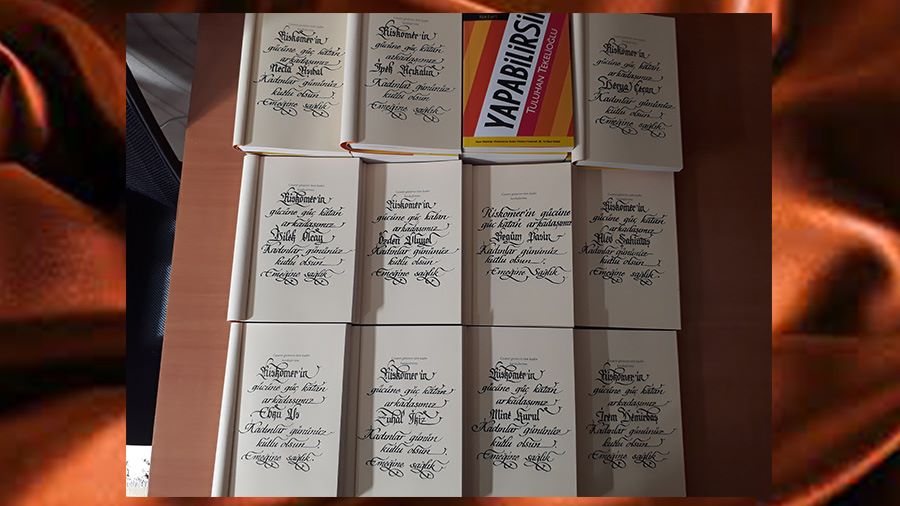 Riskomer'in
gücüne güç katan
arkadaşımız
Kadınlar gününüz
kutlu olsun
Emeğine sağlık
Riskomer'in
gücüne güç katan
arkadaşımız
İpek Açıkalın
Kadınlar gününüz
kutlu olsun
Emeğine sağlık
YAPABİLİRSİN
TULUHAN TEKELİOĞLU
Riskomer'in
gücüne güç katan
arkadaşımız
Derya Çeçan
Kadınlar gününüz
kutlu olsun
Emeğine sağlık
Riskomer'in
gücüne güç katan
arkadaşımız
Dilek Olcay
Kadınlar gününüz
kutlu olsun
Emeğine sağlık
Riskomer'in
gücüne güç katan
arkadaşımız
Özden
Kadınlar gününüz
kutlu olsun
Emeğine sağlık
Riskomer'in gücüne
güç katan arkadaşımız
Begüm
Kadınlar gününüz
kutlu olsun
Emeğine Sağlık
Riskomer'in
gücüne güç katan
arkadaşımız
Kadınlar gününüz
kutlu olsun
Emeğine sağlık
Cesaret gösteren tüm kadın
Riskomer'in
gücüne güç katan
arkadaşımız
Kadınlar gününüz
kutlu olsun
Emeğine sağlık
Cesaret gösteren tüm kadın
Riskomer'in
gücüne güç katan
arkadaşımız
Zuhal İkiz
Kadınlar günün
kutlu olsun
Emeğine sağlık
Cesaret gösteren tüm kadın
Riskomer'in
gücüne güç katan
arkadaşımız
Mine Kurul
Kadınlar gününüz
kutlu olsun
Emeğine sağlık
Cesaret gösteren tüm kadın
Riskomer'in
gücüne güç katan
arkadaşımız
İrem Demirbaş
Kadınlar gününüz
kutlu olsun
Emeğine sağlık